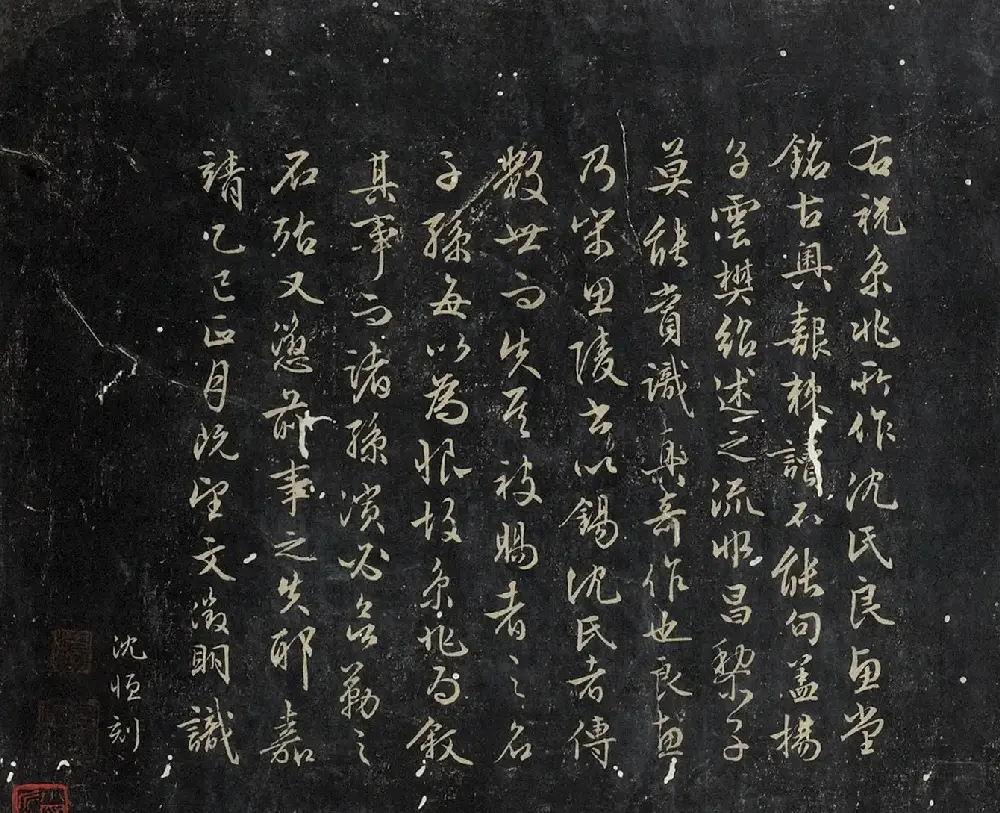 右祝京兆所作沈氏良惠堂
銘古奥艱棘讀不能句盖楊
子雲樊紹述之流惟昌黎子
莫能賞識真奇作也良惠
乃宋思陵書以錫沈氏者傳
數世而失其被賜者之名
子孫每以為恨故京兆為敘
其事而諸孫濱必勒之
石殆又懲前事之失耶嘉
靖乙巳正月既望文徵明識
沈恒刻